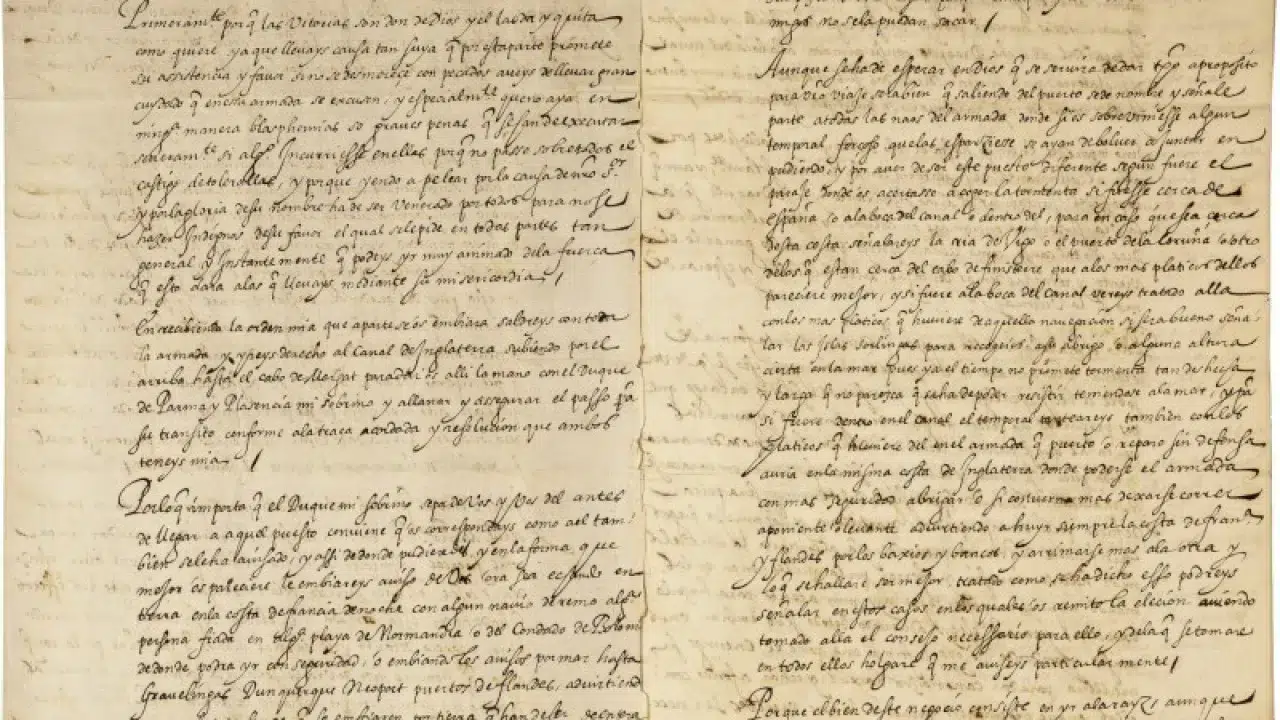 Primeramᵗᵉ porq̃ las Vitorias son don de Dios y el las da y quita
como quiere, ya que lleuays causa tan suya q̃ por esta parte promete
su assistencia y fauor si no se desmereçe con pecados aueys de lleuar gran
cuydado q̃ en esta armada se excusen, y especialmᵗᵉ que no aya en
ningᵃ manera blasphemias so graues penas q̃ se han de executar
seueramᵗᵉ si algᵒ incurriesse en ellas porq̃ no passe sobre todos el
castigo de tolerallas, y porque yendo a pelear por la causa de nr̃o Sʳ
y por la gloria de su nombre ha de ser venerado por todos para no se
hazer Indignos deste fauor el qual se le pide en todas partes tan
general, e Instantemente q̃ podeys yr muy animado de la fuerça
q̃ esto dara a las q̃ lleuays mediante su misericordia /
En recibiendo la orden mia que aparte se os embiara saldreys con toda
la armada, y yreys derecho al Canal de Inglaterra subiendo por el
arriba hasta el cabo de Morgat para daros alli la mano con el Duque
de Parma y Plasencia mi sobrino y allanar y assegurar el passo pᵃ
su transito conforme a la traça acordada y resolucion que ambos
teneys mia /
Por lo q̃ importa q̃ el Duque mi sobrino sepa de Vos y Vos del antes
de llegar a aquel puesto conuiene q̃ os correspondays como a el tam-
bien se le ha auisado, y assi de donde pudieredes, y en la forma, que
mejor os pareciere le embiareys auiso de Vos ora sea echando en
tierra en la costa de francia de noche con algun nauio de remo algᵃ
persona fiada en algᵃ playa de Normandia o del Condado de
de donde podra yr con seguridad, o embiando los auisos por mar hasta
Grauelingas Dunquerque Neoport puertos de flandes, aduirtiendo
embiaren por tierra q̃ han de
migos no se la puedan sacar /
Aunque se ha de esperar en Dios q̃ se seruira de dar tp̃o a proposito
para vr̃o viaje sera bien q̃ saliendo del puerto se de nombre y señale
parte a todas las naos del armada donde si os sobreuiniesse algun
temporal forçoso que las esparziesse se ayan de boluer a juntar en
pudiendo, y por auer de ser este puesto diferente segun fuere el
paraje donde os acertasse a coger la tormenta si fuesse cerca de
españa o a la boca del canal o dentro del, para en caso que sea cerca
desta costa señalareys la ria de Vigo o el puerto de la coruña o otro
de los q̃ estan cerca del cabo de finisterre que a los mas platicos dellos
pareciere mejor, y si fuere a la boca del canal vereys tratado alla
con los mas platicos q̃ huuiere de aquella nauegacion si sera bueno seña-
lar las Islas Sorlingas para recogeros a su abrigo o alguna altura
cierta en la mar pues ya el tiempo no promete tormenta tan deshecha
y larga q̃ no parezca q̃ se ha de poder resistir teniendose a la mar, y
si fuere dentro en el canal el temporal tanteareys tambien con los
platicos q̃ huuiere del en el armada q̃ puerto o reparo sin defensa
auria en la misma costa de Inglaterra donde poderse el armada
con mas seguridad abrigar o si conuerna mas dexarse correr
a poniente o leuante aduirtiendo a huyr siempre la costa de franᵃ
y flandes por los baxios y bancos, y arrimarse mas a la otra y
lo q̃ se hallare ser mejor tratado como se ha dicho esso podreys
señalar en estos casos en los quales os remito la elecion auiendo
tomado alla el consejo necessario para ello, y de la q̃ se tomare
en todos ellos holgare q̃ me auiseys particularmente /
Porque el bien deste negocio consiste en yr a la rayz aunque